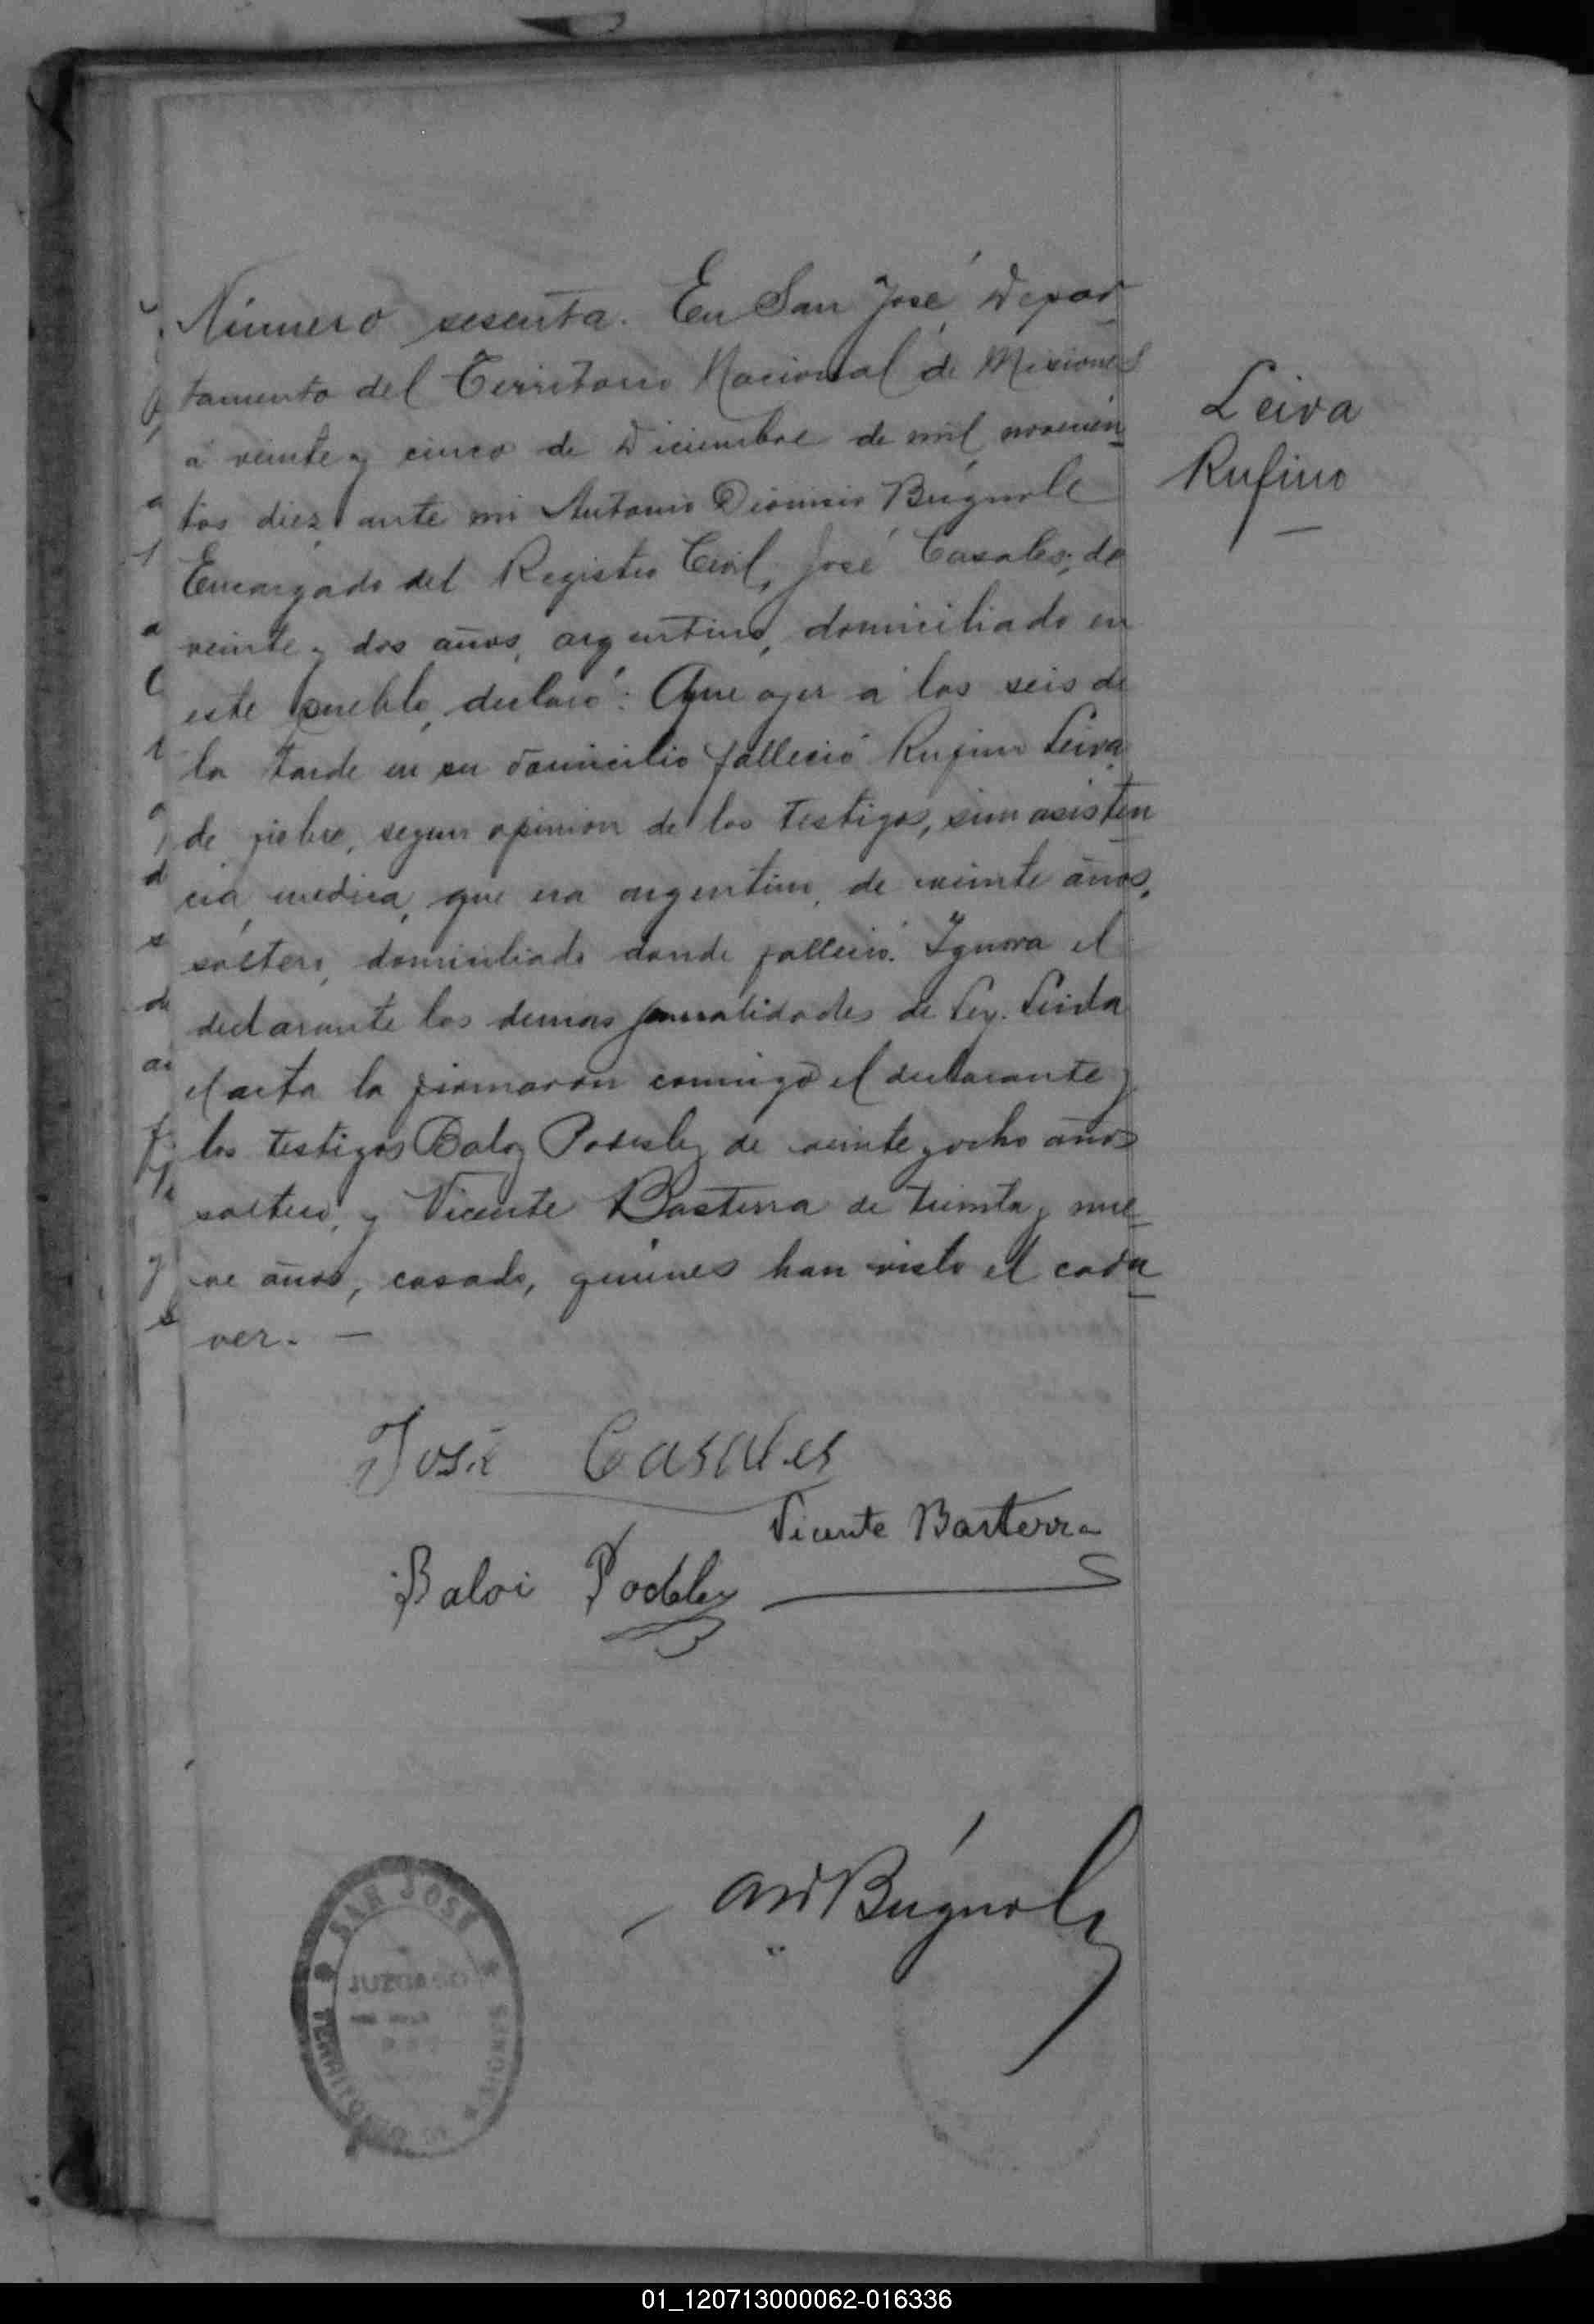 Número sesenta. En San José Depar
tamento del Territorio Nacional de Misiones
á veinte y cinco de Diciembre de mil novecien
tos diez ante mi Antonio Dionisio Búgnole
Encargado del Registro Civil, José Casales, de
veinte y dos años, argentino, domiciliado en
este pueblo, declaró: Que ayer á las seis de
la tarde en su domicilio falleció Rufino Leiva
de fiebre, segun opinion de los testigos, sin asisten
cia medica, que era argentino, de veinte años,
soltero, domiciliado donde falleció. Ignora el
declarante las demas formalidades de Ley. Leida
el acta la firmaron conmigo el declarante y
los testigos Baloy Podeley de veinte y ocho años
soltero, y Vicente Basterra de treinta y nue
ve años, casado, quienes han visto el cada
ver. —
Leiva
Rufino
José Casales
Vicente Basterra
Baloi Podeley
AD Búgnole
SAN JOSÉ
JUZGADO
TERRITORIO DE MISIONES
01_120713000062-016336